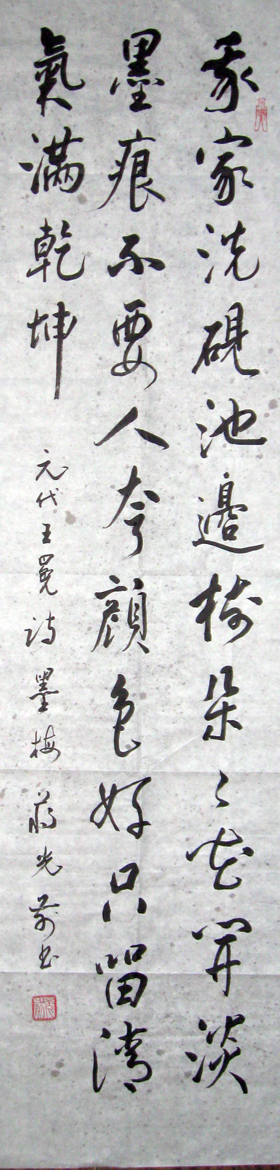 我家洗硯池邊樹朶〻花開淡
墨痕不要人夸顔色好只留清
氣滿乾坤
元代王冕詩墨梅 蔣光前书